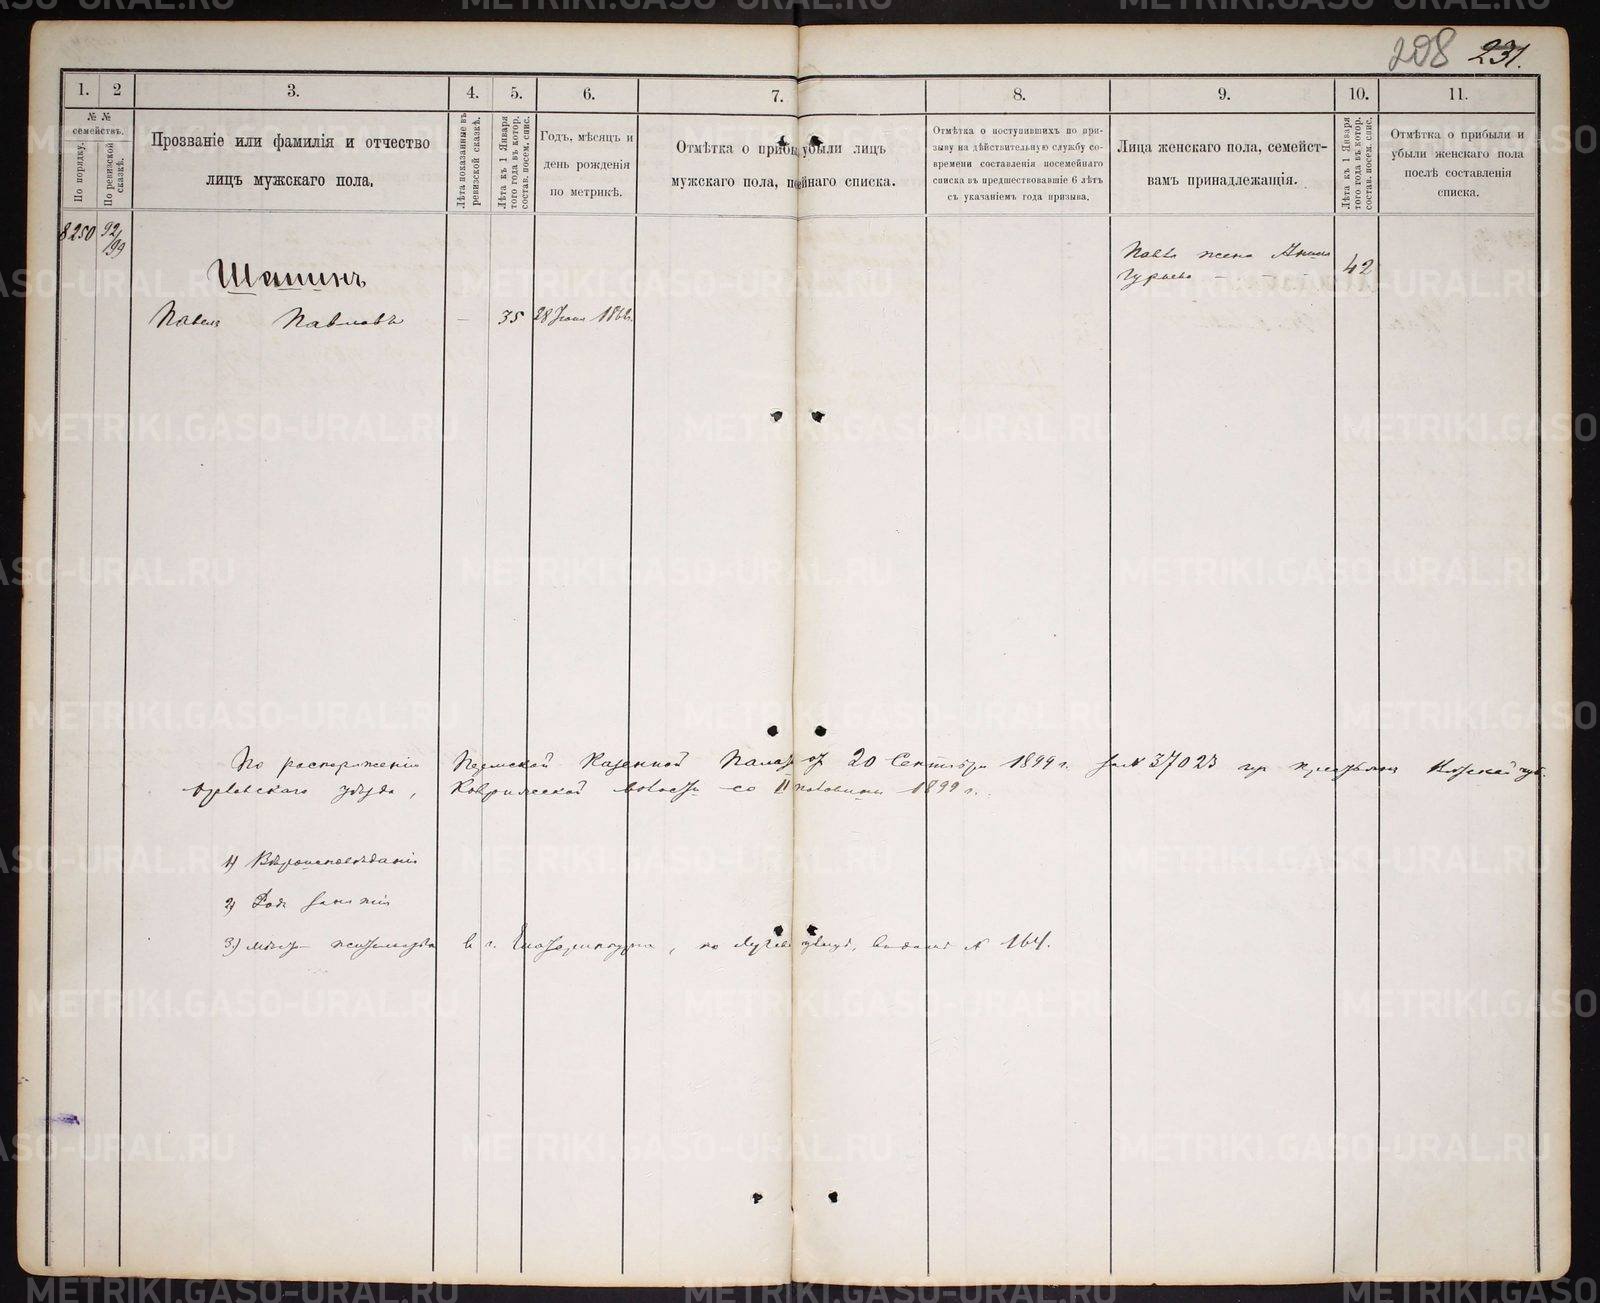 208 231.
1. 2 3. 4. 5. 6. 7. 8. 9. 10. 11.
№ №
семействъ.
По порядку.
По ревизской сказкѣ.
Прозваніе или фамилія и отчество
лицъ мужскаго пола.
Лѣта показанныя въ
ревизской сказкѣ.
Лѣта къ 1 Января
того года въ котор.
состав. посем. спис.
Годъ, мѣсяцъ и
день рожденія
по метрикѣ.
Отмѣтка о убыли лицъ
мужскаго пола, списка.
Отмѣтка о поступившихъ по при-
зыву на дѣйствительную службу со-
времени составленія посемейнаго
списка въ предшествовавшіе 6 лѣтъ
съ указаніемъ года призыва.
Лица женскаго пола, семейст-
вамъ принадлежащія.
Лѣта къ 1 Января
того года въ котор.
состав. посем. спис.
Отмѣтка о прибыли и
убыли женскаго пола
послѣ составленія
списка.
8250 92/99
Шашинъ
Павелъ Павловъ — 35 28
Павла жена
Гурьева 42
По распоряженію Пермской Казенной Палаты от 20 Сентября 1899 г. за № 37023 Вятской губ.
Орловскаго уѣзда, волости со II половины 1899 г.
1) Вѣроисповѣданіе
2) Родъ занятій
3) Мѣсто жительства в г. Екатеринбургѣ, по № 164.
METRIKI.GASO-URAL.RU